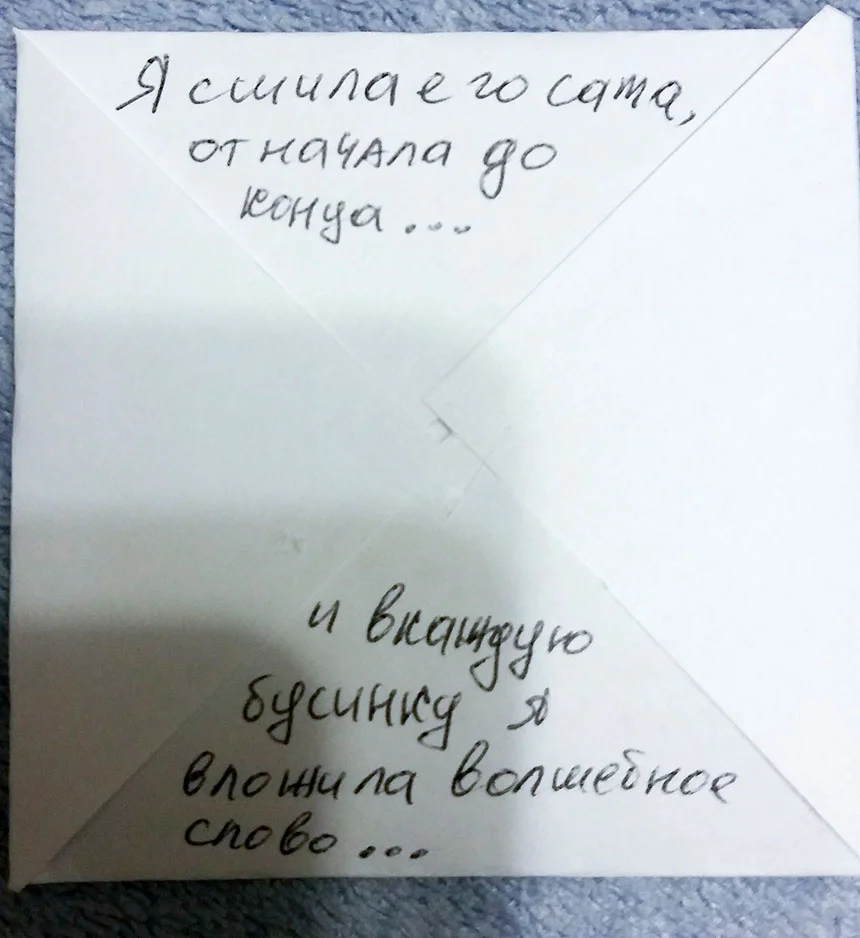 Я сшила его сама,
от начала до
конца...
и в каждую
бусинку я
вложила волшебное
слово...